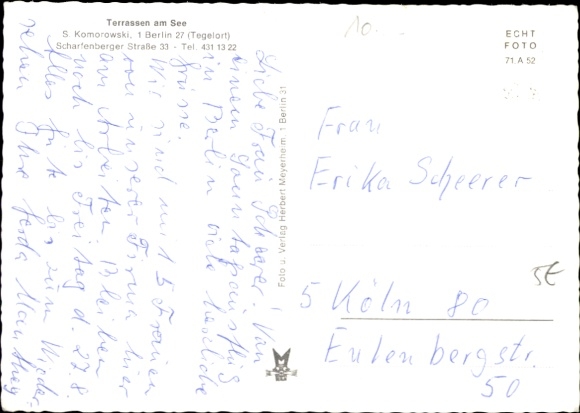 Terrassen am See
S. Komorowski, 1 Berlin 27 (Tegelort)
Scharfenberger Straße 33 - Tel. 431 13 22
10.-
ECHT
FOTO
71. A 52
Liebe Frau Scheerer! Von
einem Sonntagsausflug
in Berlin viele herzliche
Grüsse.
Wir sind mit 5 Frauen
von unserer Firma hier
am Arbeiten. Bleiben
noch bis Freitag d. 27.8.
Alles Gute bis zum Wieder-
sehen Ihre
Foto u. Verlag Herbert Meyerheim, 1 Berlin 31
Frau
Erika Scheerer
5 Köln 80
Eulenbergstr.
50
5€